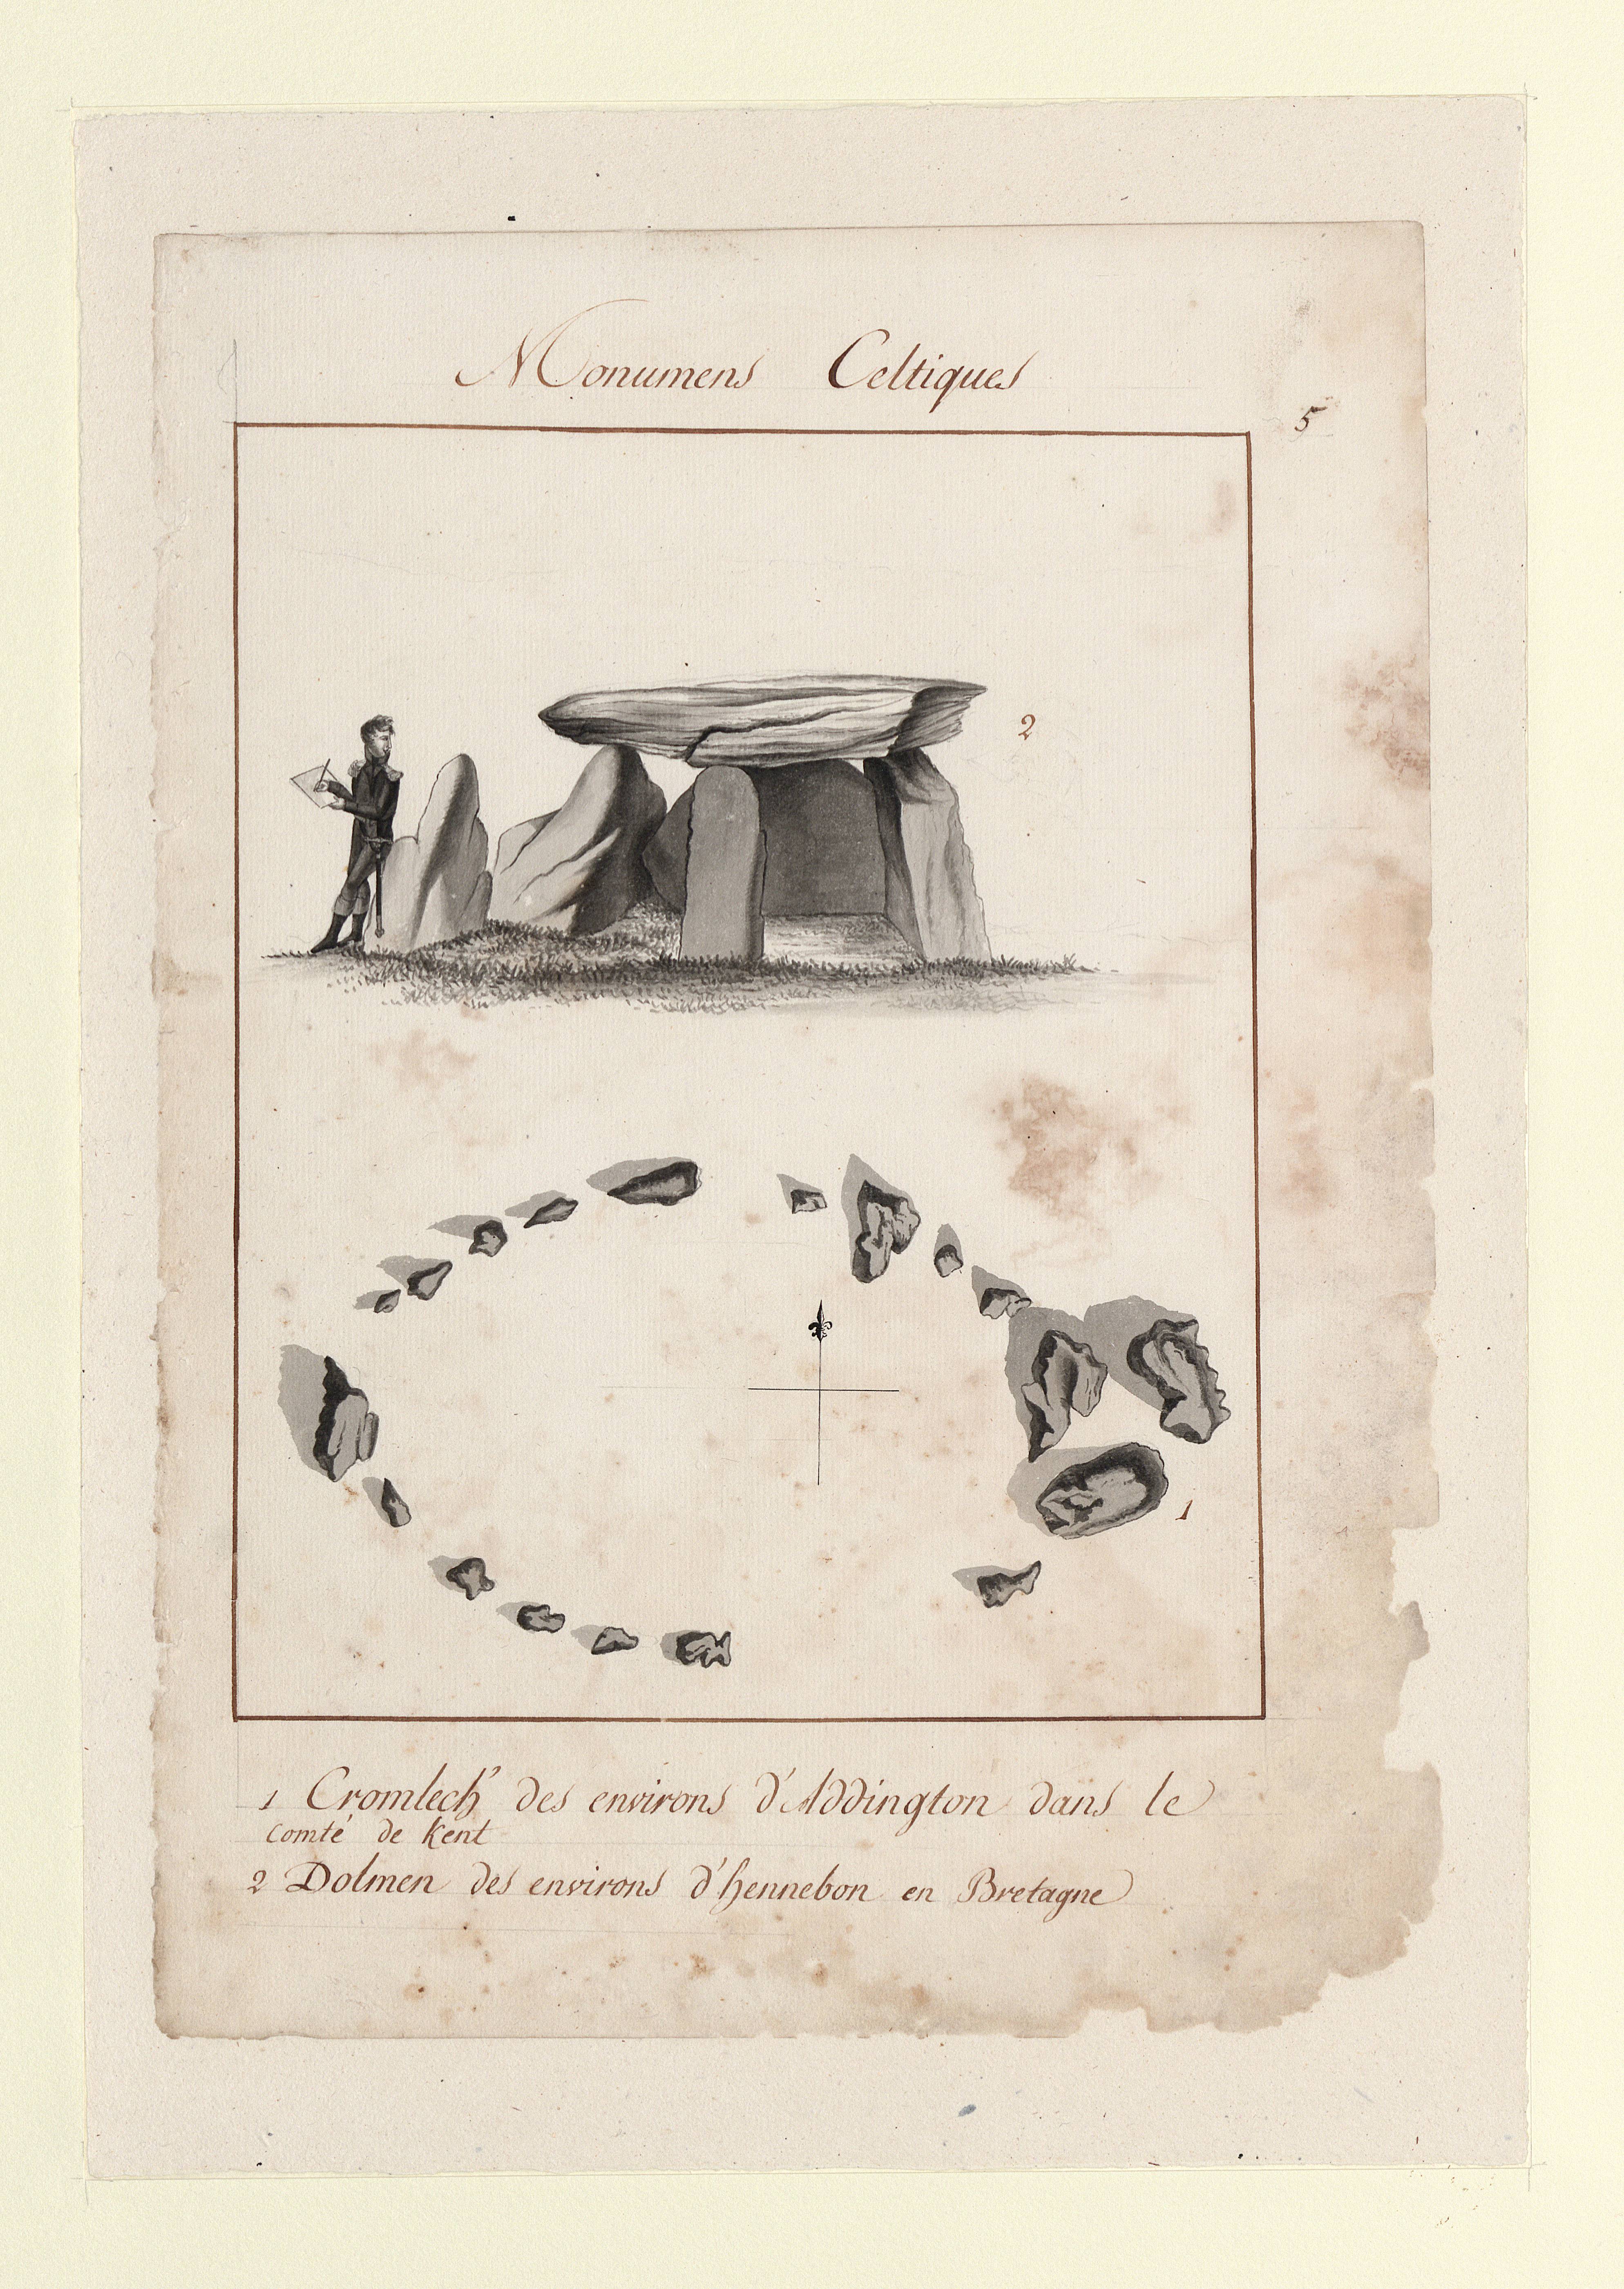 Monumens Celtiques
5
2
1
1 Cromlech' des environs d'Addington dans le
comté de Kent
2 Dolmen des environs d'hennebon en Bretagne